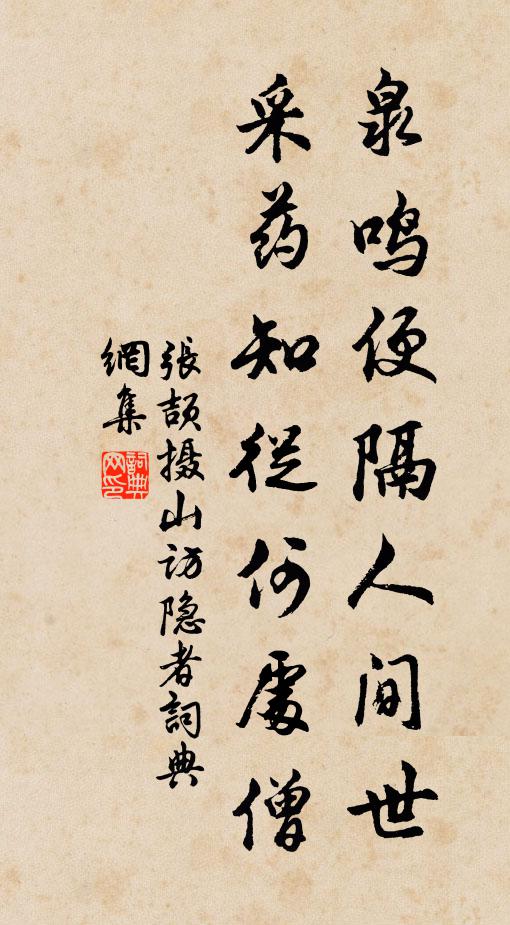 泉鸣便隔人间世
采药知從何處僧
張頡摄山访隐者詞典
網集
詞典
网印